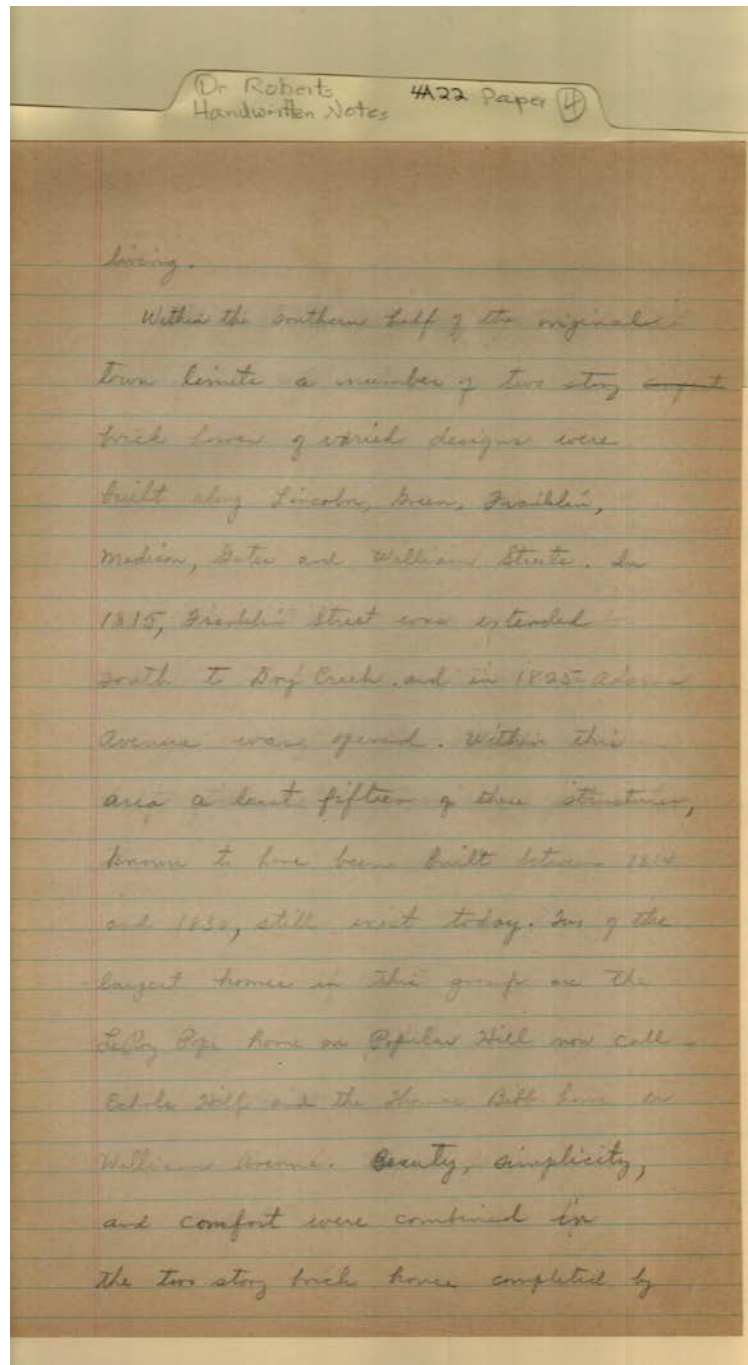 Dr Roberts 4A22 Paper 4
Handwritten Notes
living.
Within the southern half of the original
town limits a number of two story
brick homes of varied designs were
built along Lincoln, Green, Franklin,
Madison, Gates and William Streets. In
1815, Franklin Street was extended
south to Drug Creek and in 1825 Adams
Avenue was opened. Within this
area a least fifteen of these structures,
known to have been built between 1814
and 1830, still exist today. Two of the
largest homes in this group are the
LeRoy Pope home on Popular Hill now call
Echols Hill and the Thomas Bibb home on
Williams Avenue. Beauty, simplicity,
and comfort were combined in
the two story brick house completed by